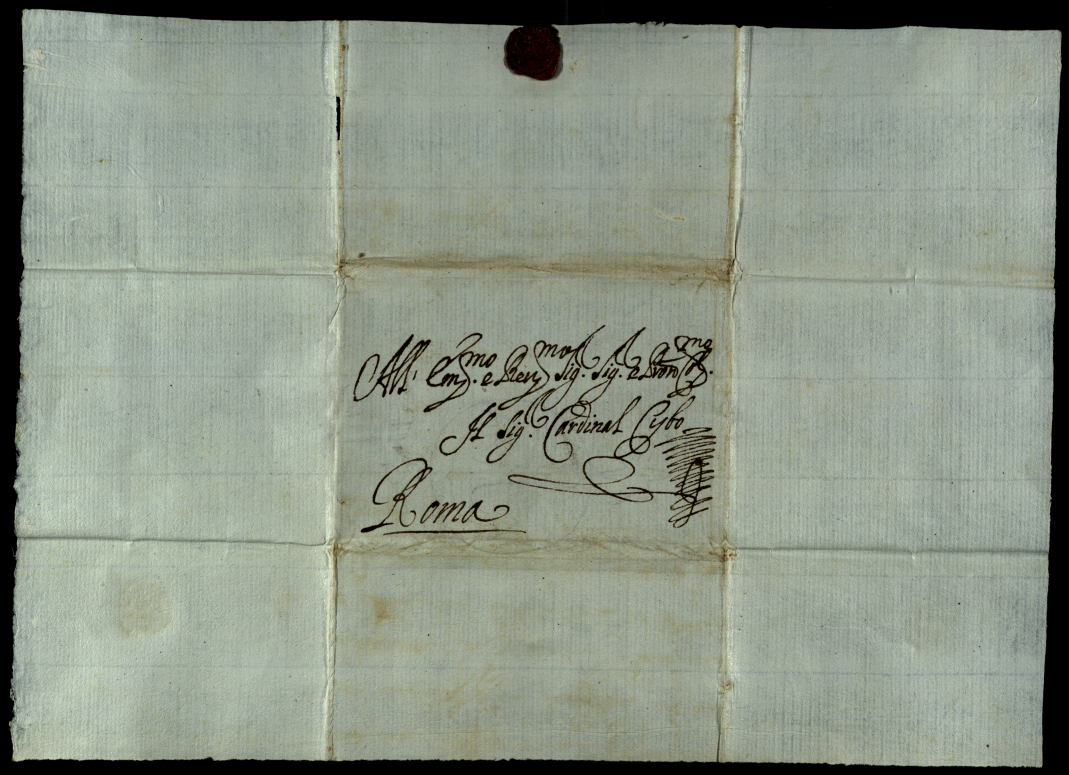 All' Em.mo e Rev.mo Sig. Sig. e Pron
Il Sig. Cardinal Cybo
Roma